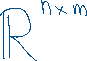 ℝ^{n×m}